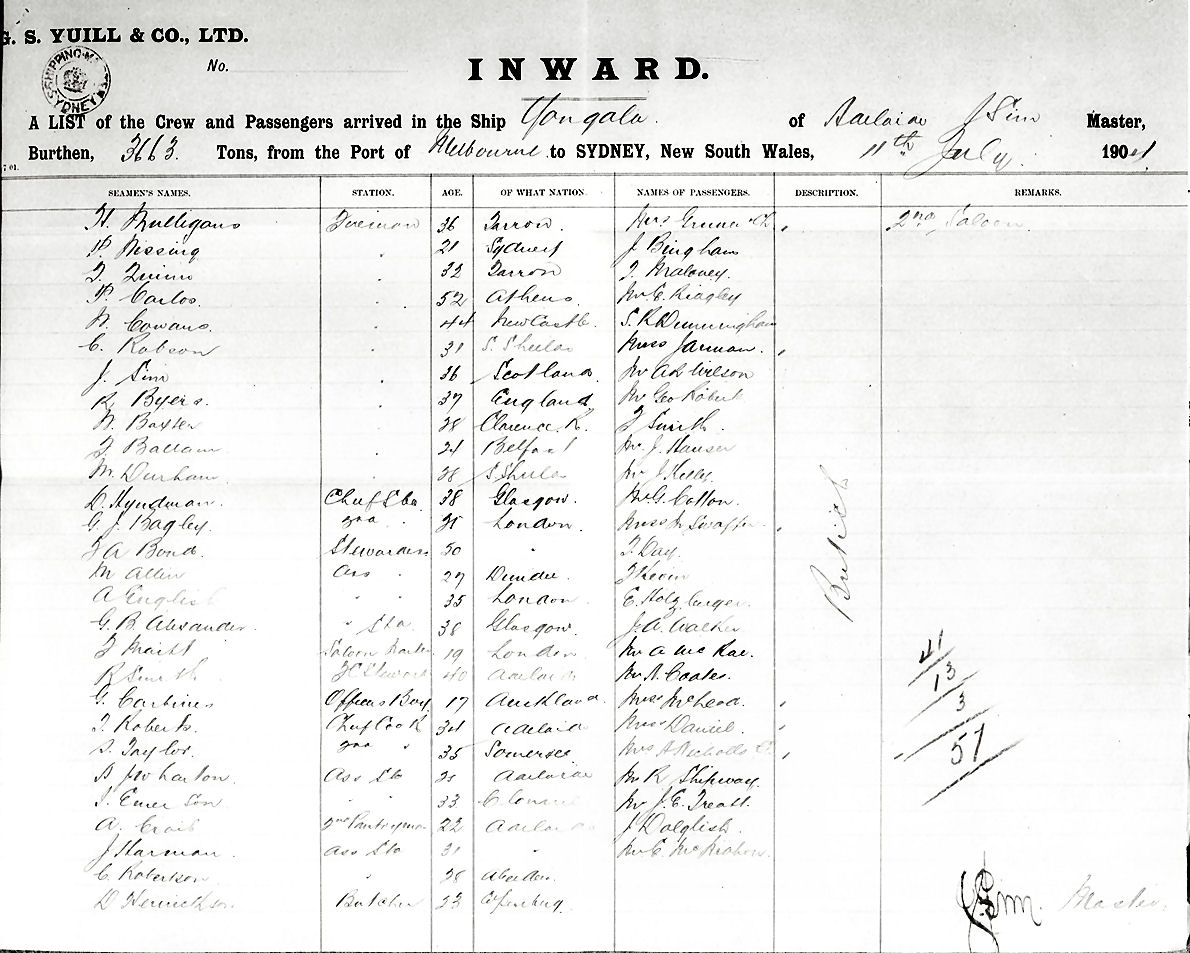 G. S. YUILL & CO., LTD.
SHIPPING MASTER SYDNEY
No.
INWARD.
A LIST of the Crew and Passengers arrived in the Ship Yongala. of Adelaide J Sim Master,
Burthen, 3663. Tons, from the Port of Melbourne to SYDNEY, New South Wales, 11th July. 1904
SEAMEN'S NAMES. STATION. AGE. OF WHAT NATION. NAMES OF PASSENGERS. DESCRIPTION. REMARKS.
H. Mulligans Fireman 36 2nd Saloon
P. Nissing 21 Sydney J Bingham
T. Quinn 32 T. Maloney.
P. Carlos. 52 Athens. Mr E. Ridgley
N. Cowans. 44 New Castle. S. R Dunningham
C. Robson 31 S. Sheilds Miss Jarman.
J. Sim 36 Scotland Mr A L Wilson
R. Byers. 37 England Mr Geo Robert
N. Baxter 28 Clarence R. T Smith.
T. Ballam 24 Belfast Mr. J. Hanser
M. Durham. 28 S Sheilds Mr J
D. Hyndman. Chief Std. 38 Glasgow. Mr G. Cotton.
G. J. Bagley. 2nd 25 London. Miss M
T A Bond. Stewardess 50 " T. Day.
M Allen Ass 27 Dundee. T
A English 35 London E. Holzberger
G. B. Alexander " Std 38 Glasgow. J. A. Walker
T Saloon 19 London Mr A McRae.
R Smith Steward 40 Adelaide Mr A. Coates.
G. Carbines Officers Boy 17 Auckland. Miss McLeod.
T. Roberts. Chief Cook 34 Adelaide Miss Daniel.
S. Taylor. 2nd " 35 Somerset Mrs A Nicholls
B. J Wharton. Ass Std 21 Adelaide Mr R Shipway.
T. Emerson. " 33 Mr J. E. Treatt.
A. Craib 2nd Pantryman 22 Adelaide J Dalglish.
J Harman. Ass Std 21 " Mr C.
C. Robertson. " 28 Aberdeen.
D Butcher 23
British
41
13
3
57
J Sim. Master